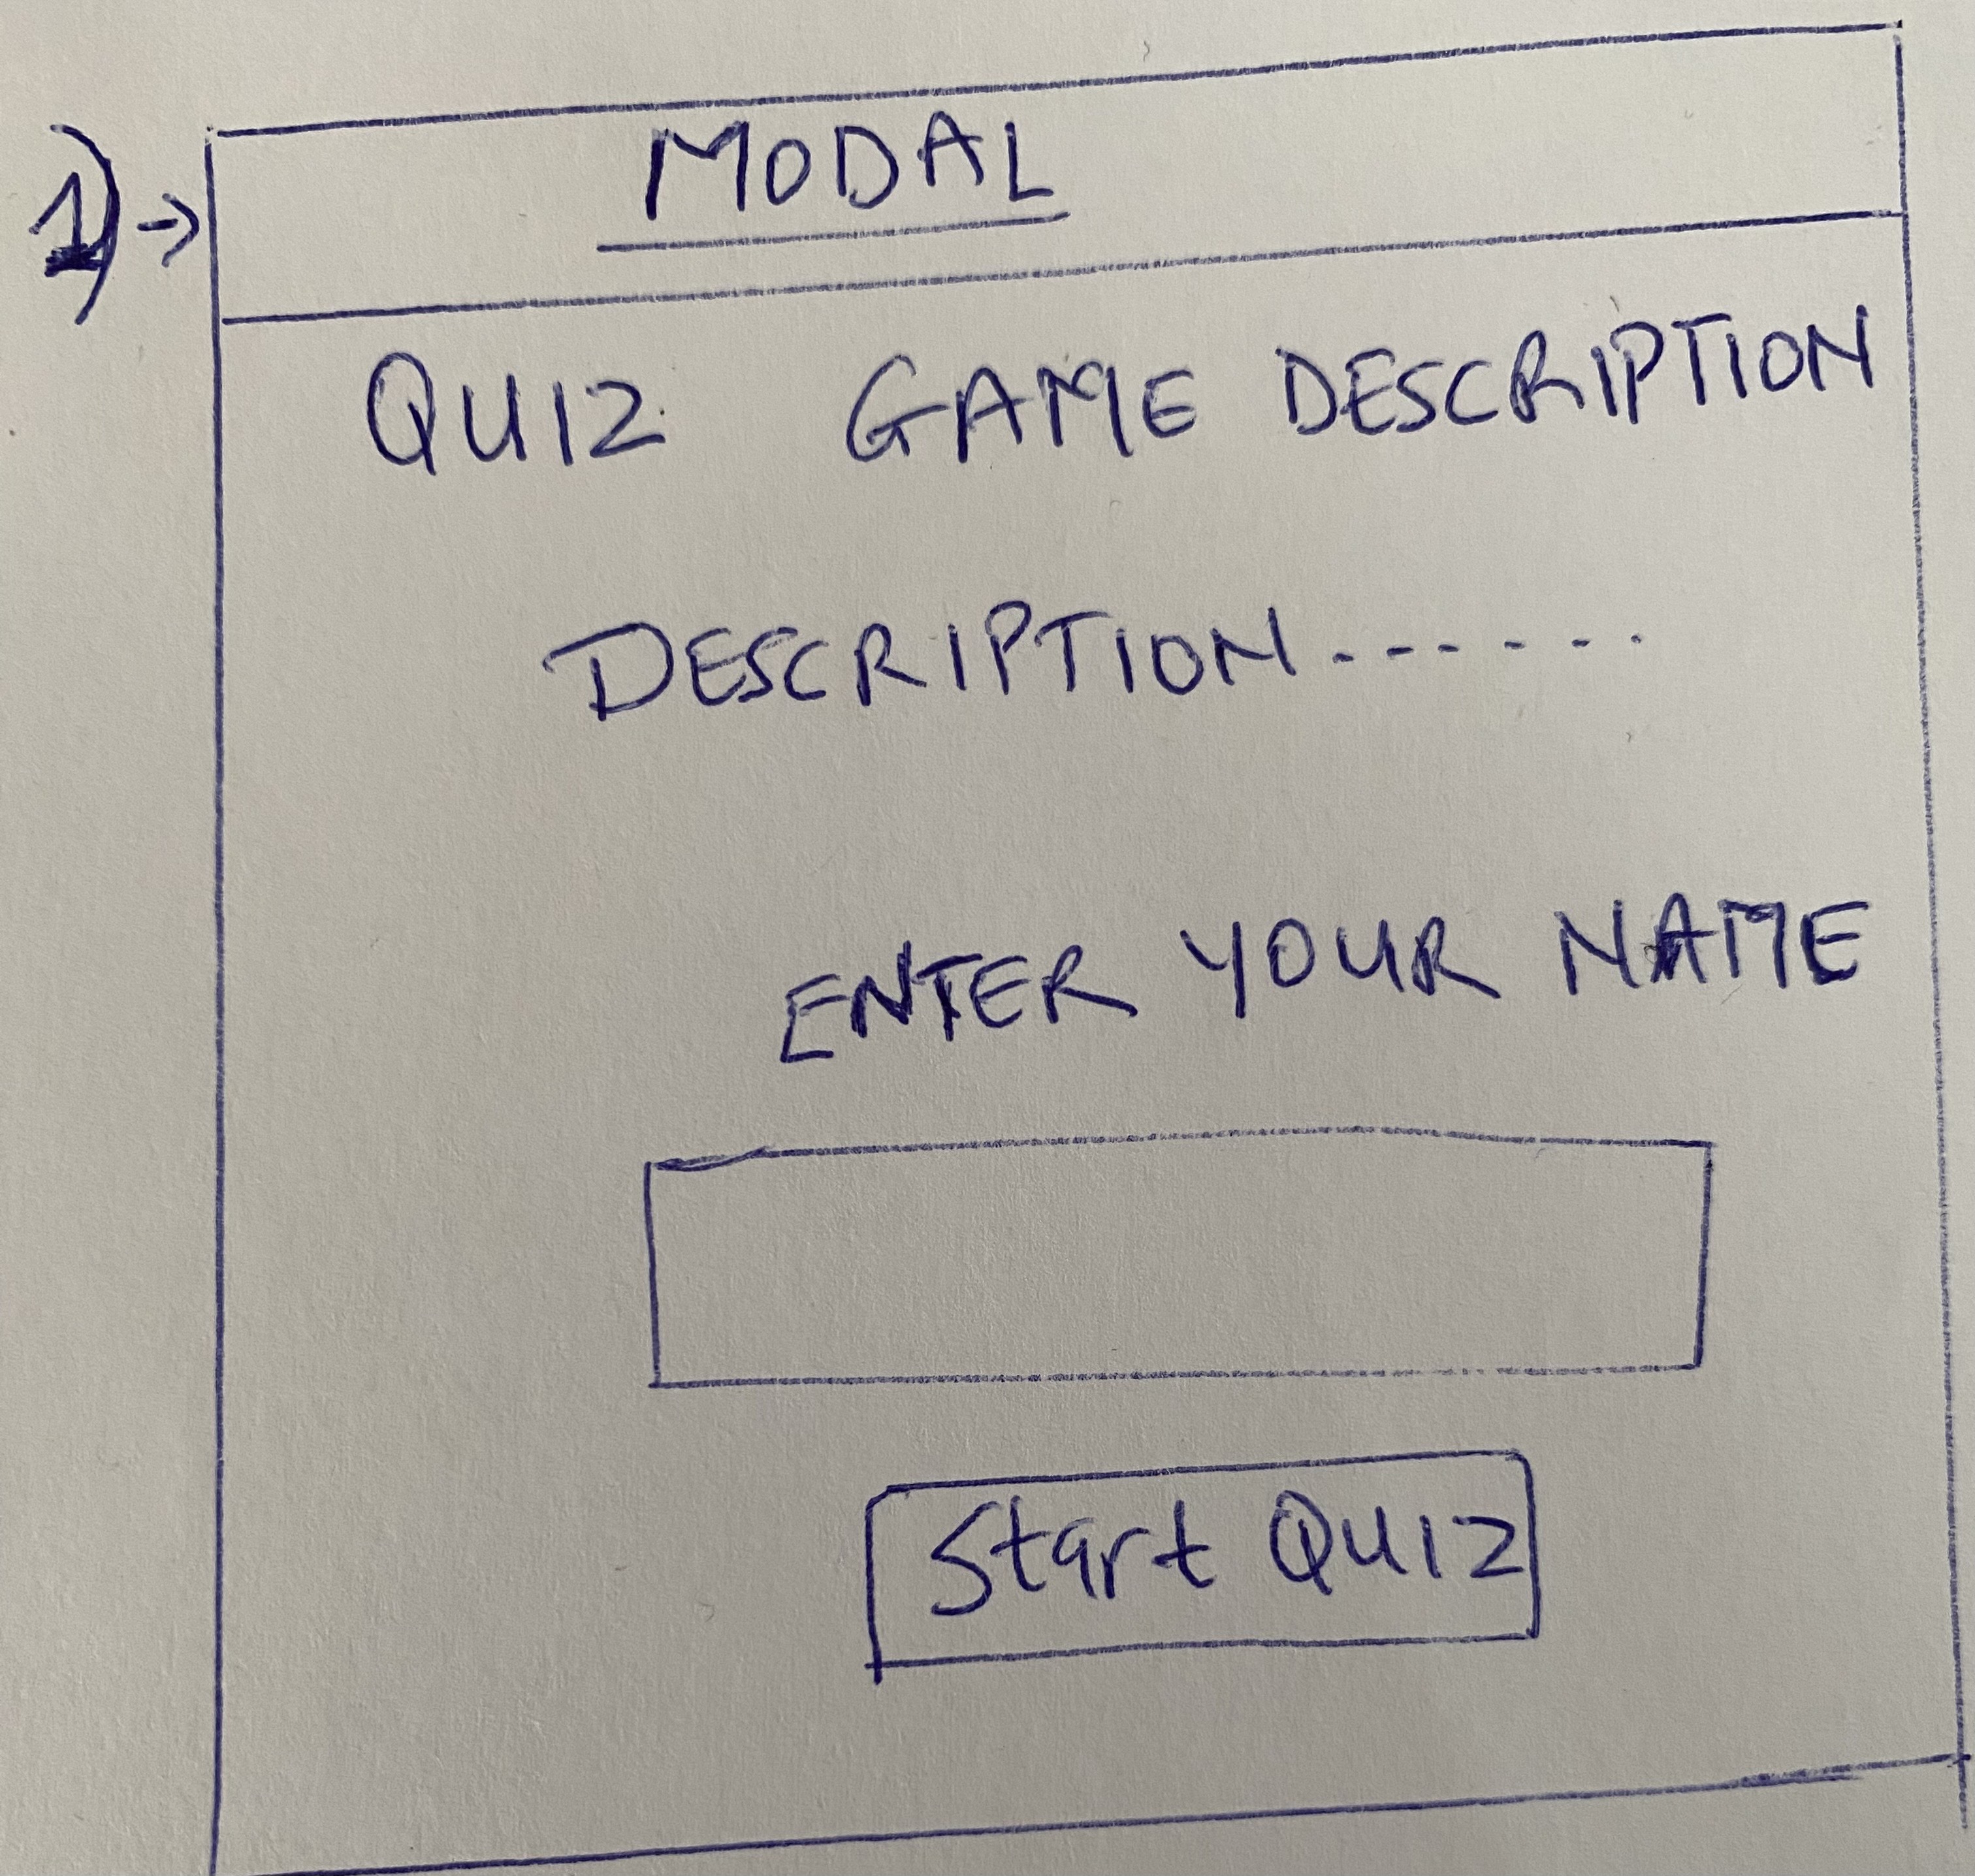 1) →
MODAL
QUIZ GAME DESCRIPTION
DESCRIPTION.......
ENTER YOUR NAME
Start QUIZ